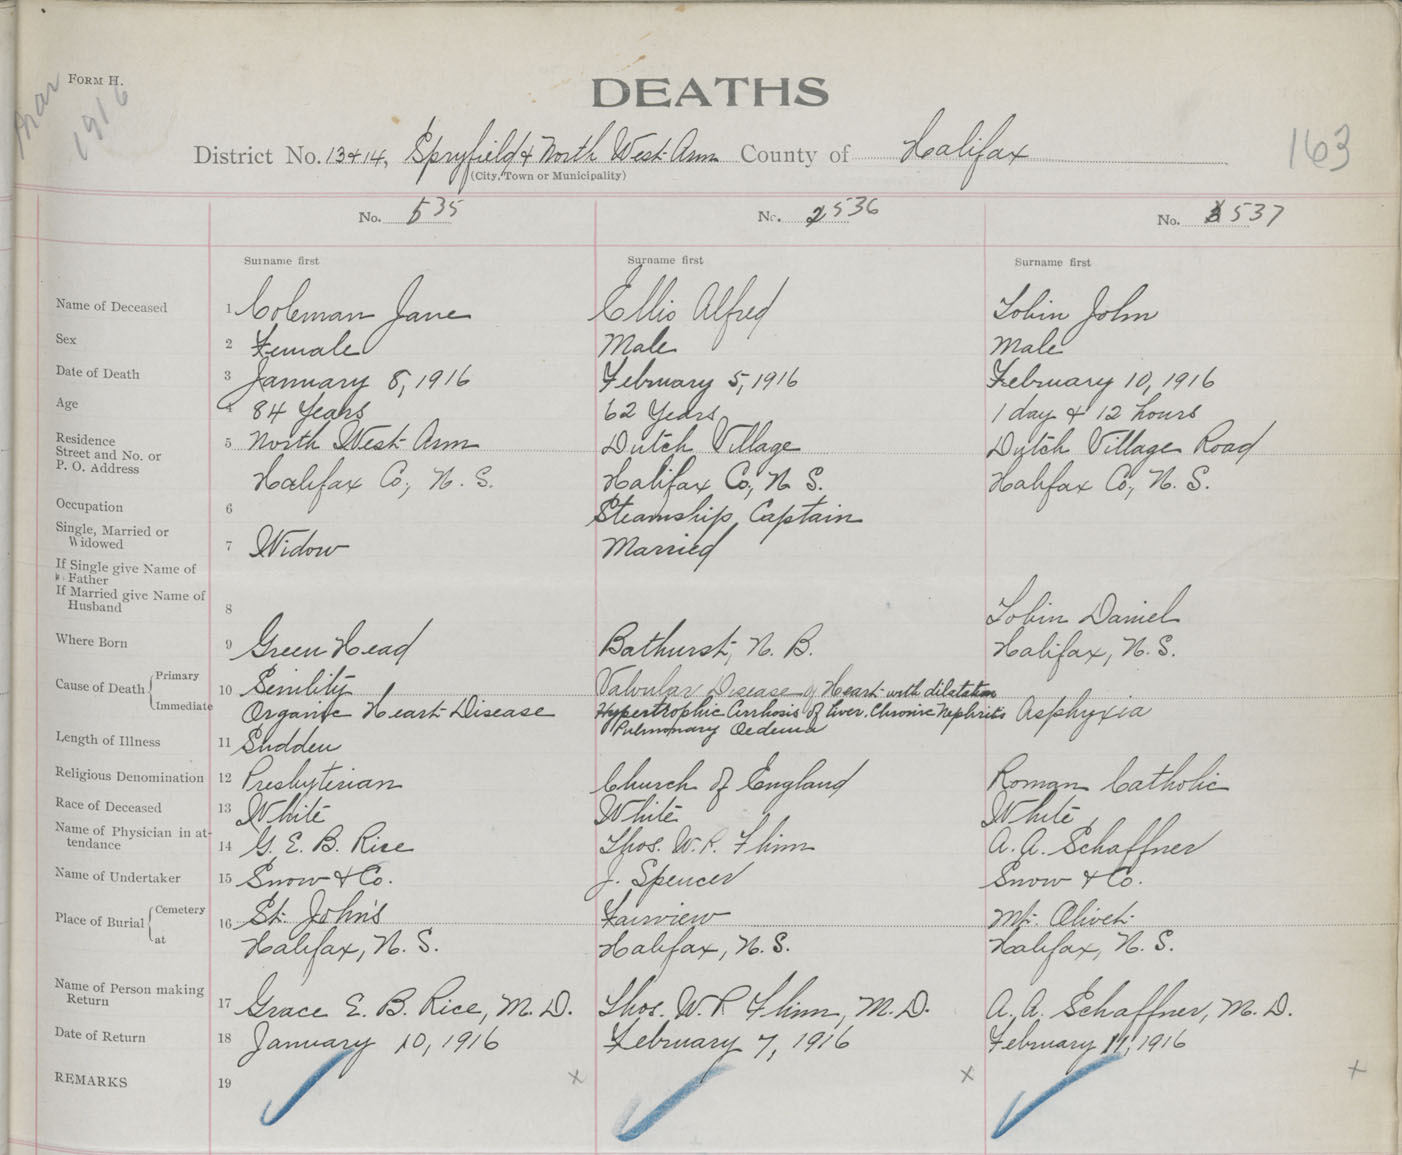 FORM H.
Mar
1916
DEATHS
163
District No. 13 & 14, Spryfield & North West Arm County of Halifax
(City, Town or Municipality)
No. 535 No. 2 536 No. 3 537
Surname first Surname first Surname first
Name of Deceased 1 Coleman Jane Ellis Alfred Tobin John
Sex 2 Female Male Male
Date of Death 3 January 8, 1916 February 5, 1916 February 10, 1916
Age 4 84 Years 62 Years 1 day & 12 hours
Residence 5 North West Arm Dutch Village Dutch Village Road
Street and No. or
P. O. Address Halifax Co., N. S. Halifax Co., N S. Halifax Co., N. S.
Occupation 6 Steamship Captain
Single, Married or
Widowed 7 Widow Married
If Single give Name of
Father
If Married give Name of
Husband 8 Tobin Daniel
Where Born 9 Green Head Bathurst, N. B. Halifax, N. S.
Cause of Death Primary 10 Senility Valvular Disease of Heart with dilatation
Immediate Organic Heart Disease Hypertrophic Cirrhosis of Liver. Chronic Nephritis Asphyxia
Pulmonary Oedema
Length of Illness 11 Sudden
Religious Denomination 12 Presbyterian Church of England Roman Catholic
Race of Deceased 13 White White White
Name of Physician in at-
tendance 14 G. E. B. Rice Thos. W. R. Flinn A. A. Schaffner
Name of Undertaker 15 Snow & Co. J. Spencer Snow & Co.
Place of Burial Cemetery 16 St. John's Fairview Mt. Olivet
at Halifax, N. S. Halifax, N. S. Halifax, N. S.
Name of Person making
Return 17 Grace E. B. Rice, M. D. Thos. W. R Flinn, M. D. A. A. Schaffner, M. D.
Date of Return 18 January 10, 1916 February 7, 1916 February 11, 1916
REMARKS 19 x x x